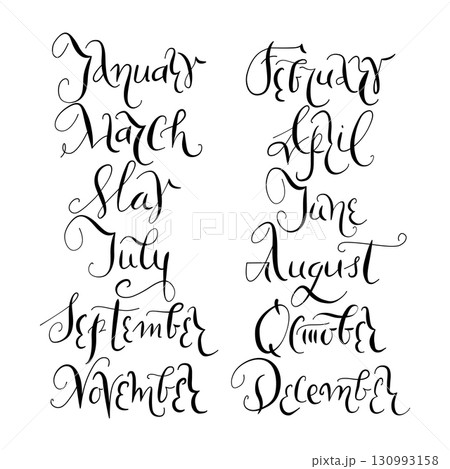 January February
March April
May June
July August
September October
November December
PIXTA
pixta.jp - 130993158